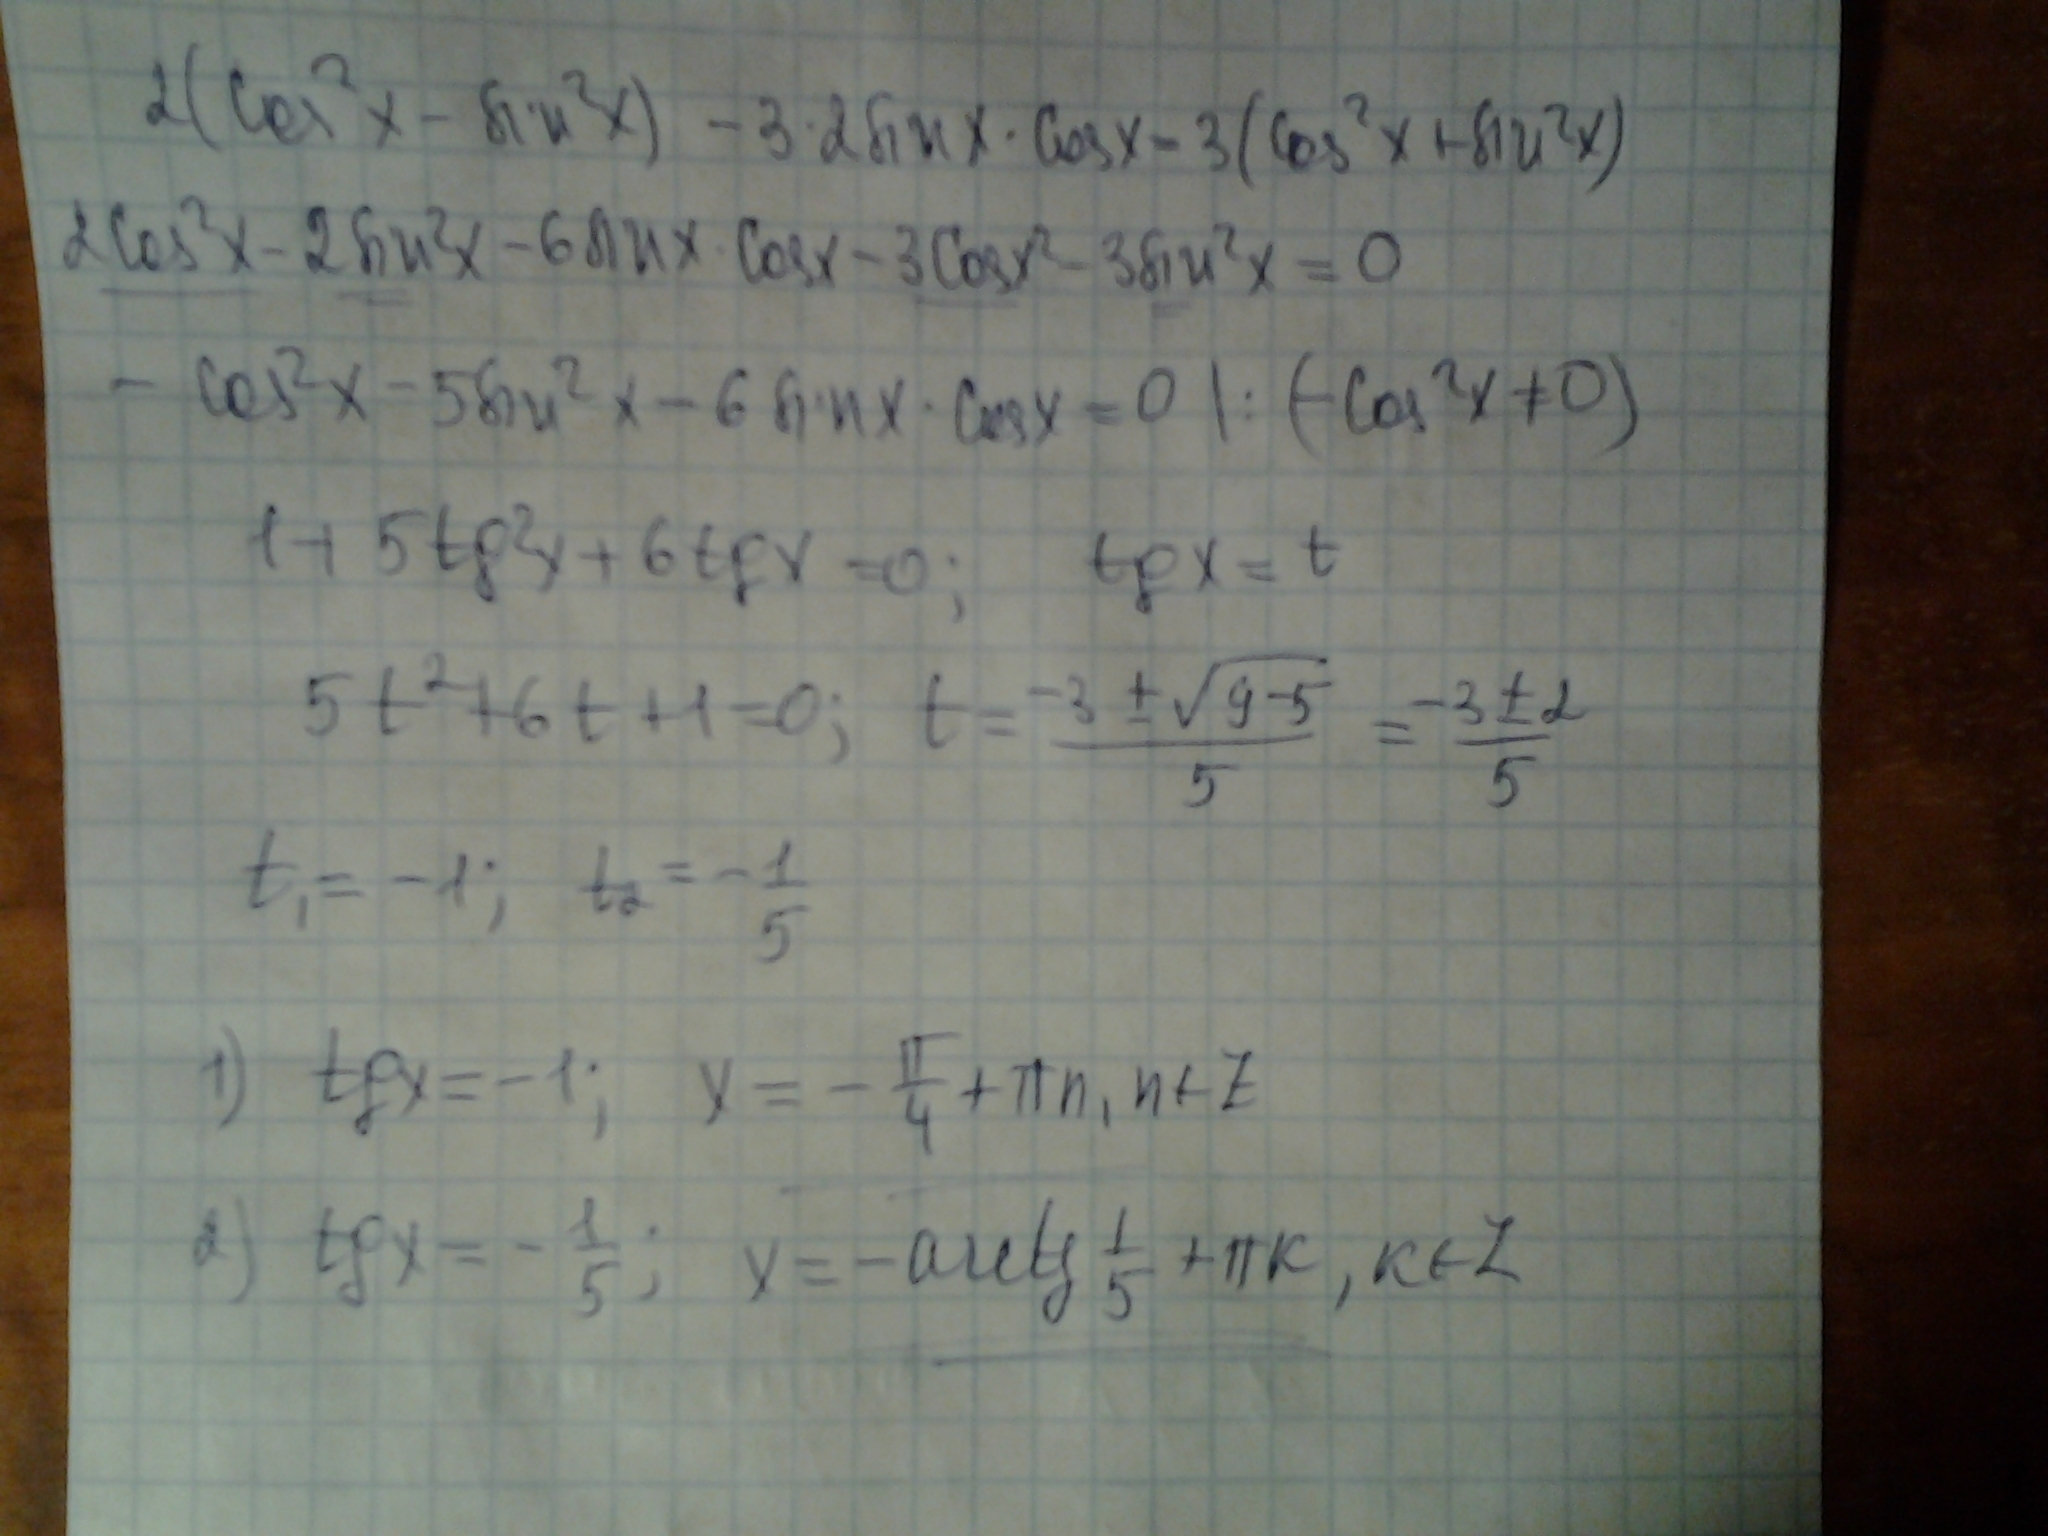 2(cos²x - sin²x) - 3·2sinx·cosx - 3(cos²x + sin²x)
2cos²x - 2sin²x - 6sinx·cosx - 3cosx² - 3sin²x = 0
- cos²x - 5sin²x - 6sinx·cosx = 0 |: (-cos²x ≠ 0)
1 + 5tg²x + 6tgx = 0; tgx = t
5t² + 6t + 1 = 0; t = (-3 ± √(9-5))/5 = (-3 ± 2)/5
t₁ = -1; t₂ = -1/5
1) tgx = -1; x = -π/4 + πn, n∈Z
2) tgx = -1/5; x = -arctg 1/5 + πк, к∈Z